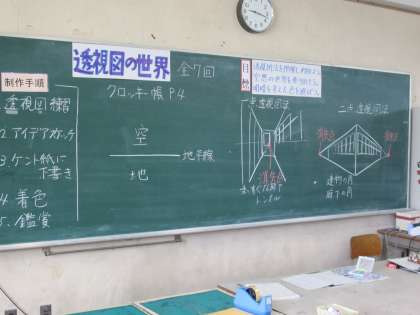 透視図の世界
全7回
制作手順
1.透視図練習
2.アイデアスケッチ
3.ケント紙に
下書き
4.着色
5.鑑賞
クロッキー帳 P4
空
地平線
地
目標
一点透視図法
消失点
まっすぐな廊下
トンネル
二点透視図法
消失点
消失点
・建物の角
廊下の角